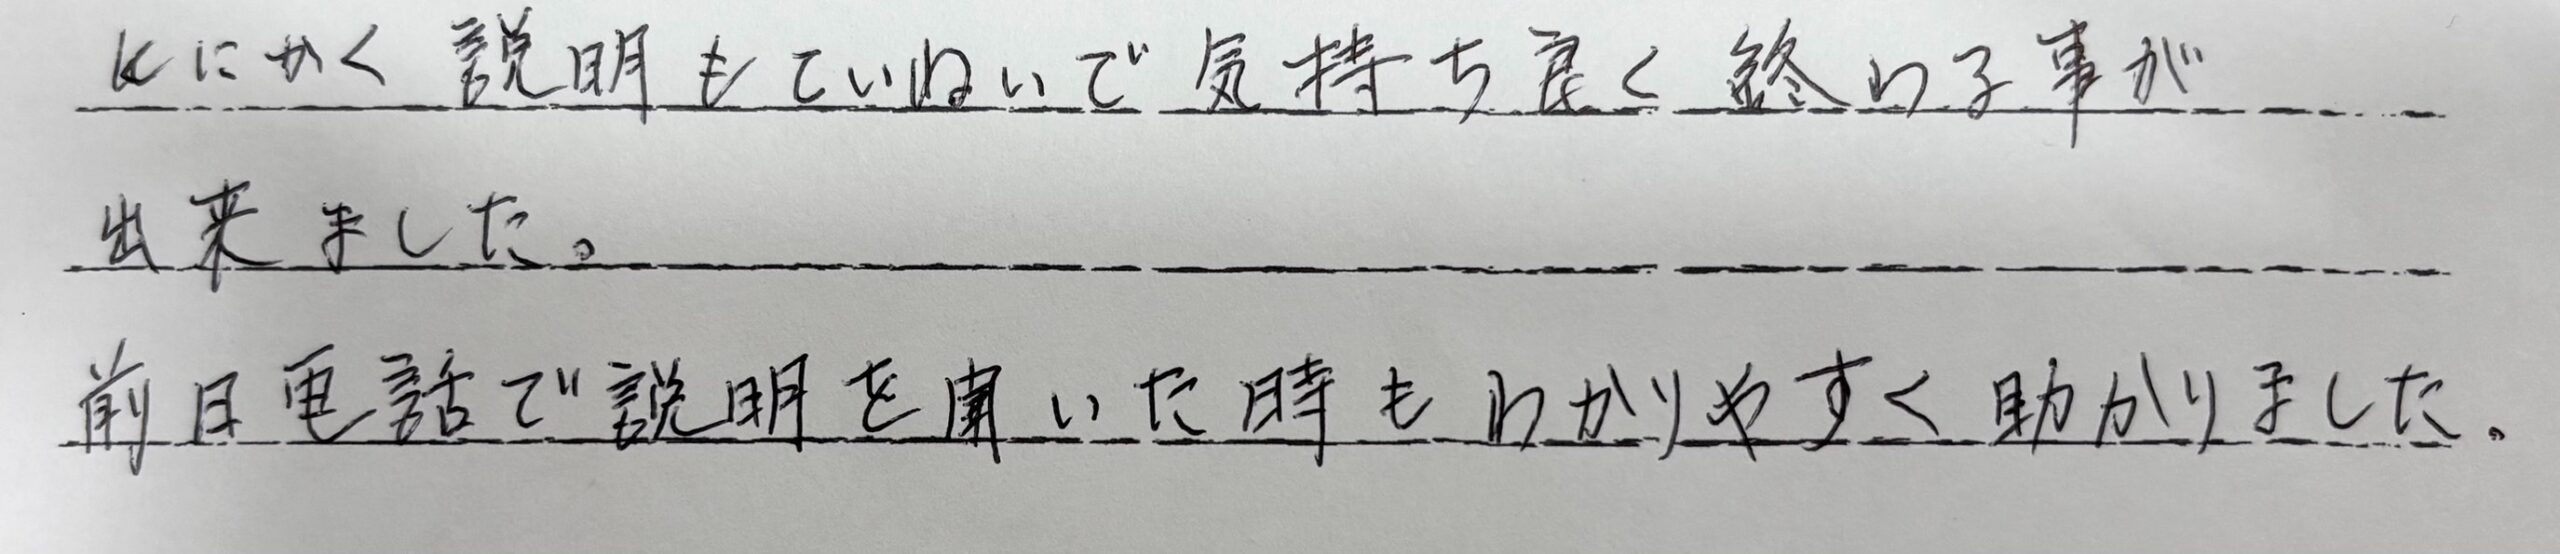 とにかく説明もていねいで気持ち良く終わる事が
出来ました。
前日電話で説明を聞いた時もわかりやすく助かりました。